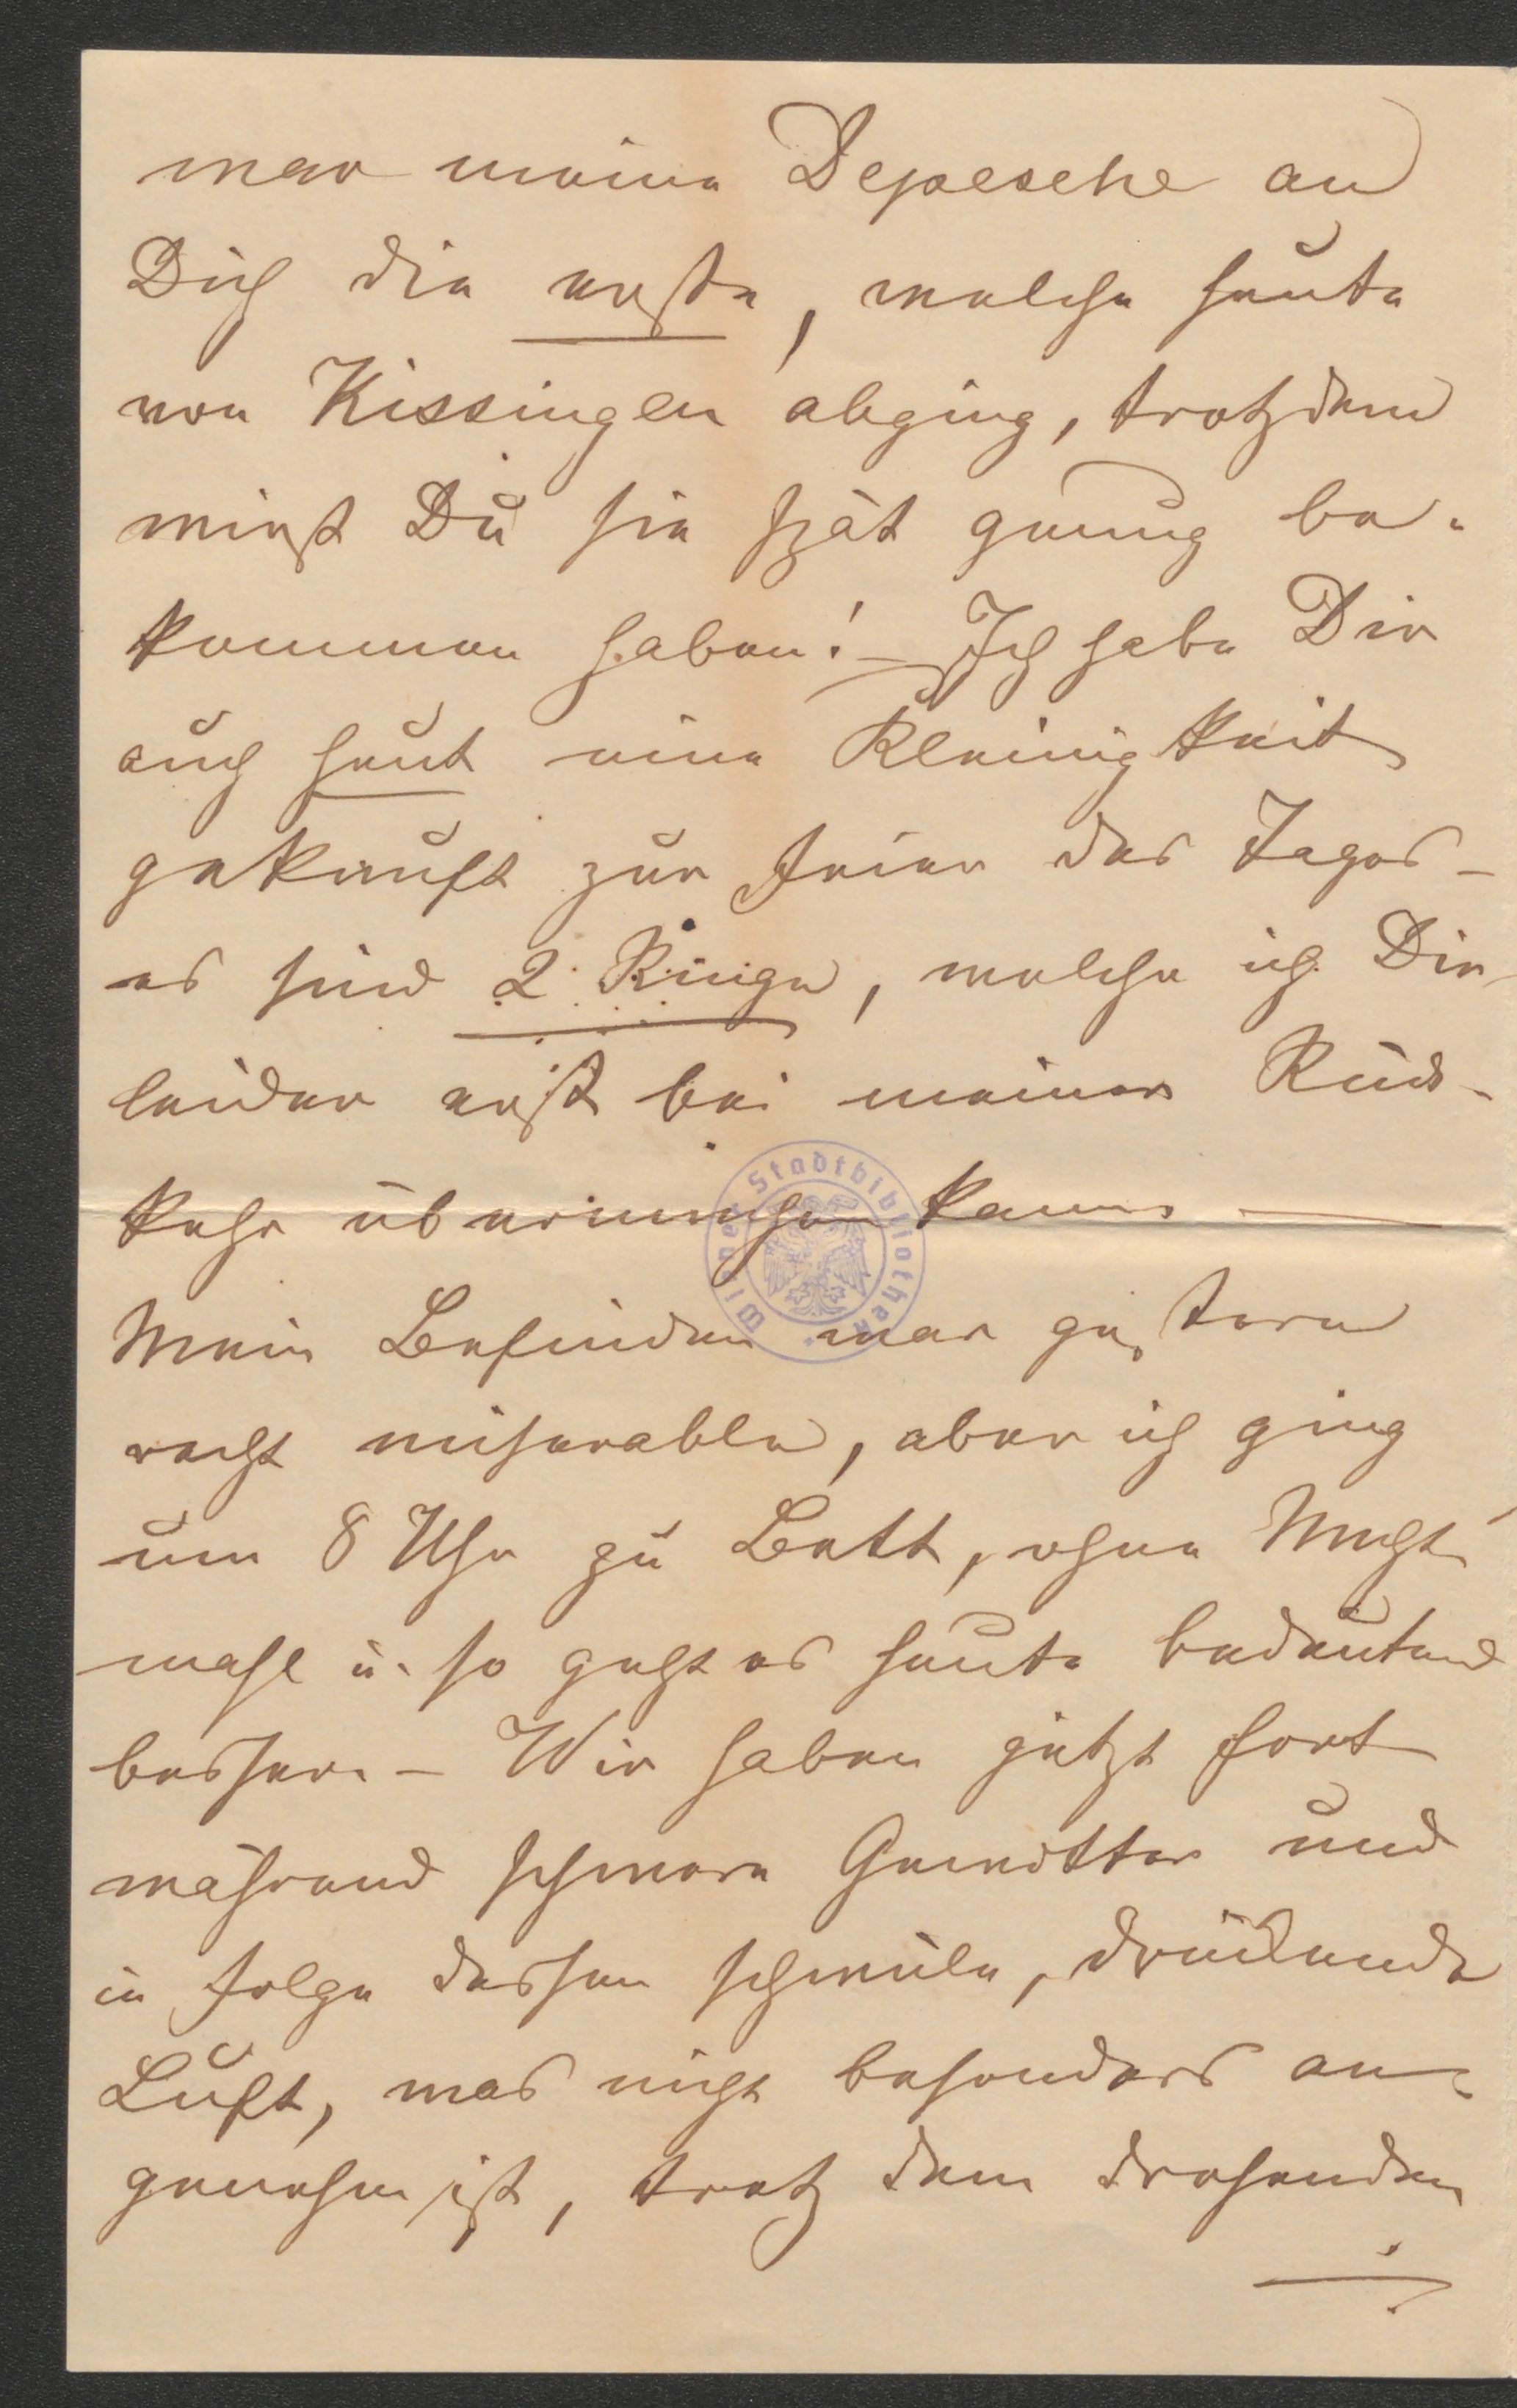 war meine Depesche an
Dich die erste, welche heute
von Kissingen abging, trotzdem
wirst Du sie spät genug be-
kommen haben! – Ich habe Dir
auch heut eine Kleinigkeit
gekauft zur Feier des Tages –
es sind 2 Ringe, welche ich Dir
leider erst bei meiner Rück-
kehr überreichen kann. —
Mein Befinden war gestern
recht miserable, aber ich ging
um 8 Uhr zu Bett, ohne Nacht-
mahl u. so geht es heute bedeutend
besser. – Wir haben jetzt fort
während schwere Gewitter und
in folge dessen schwüle, drückende
Luft, was nicht besonders an-
genehm ist, trotz dem drohenden
Wiener Stadtbibliothek